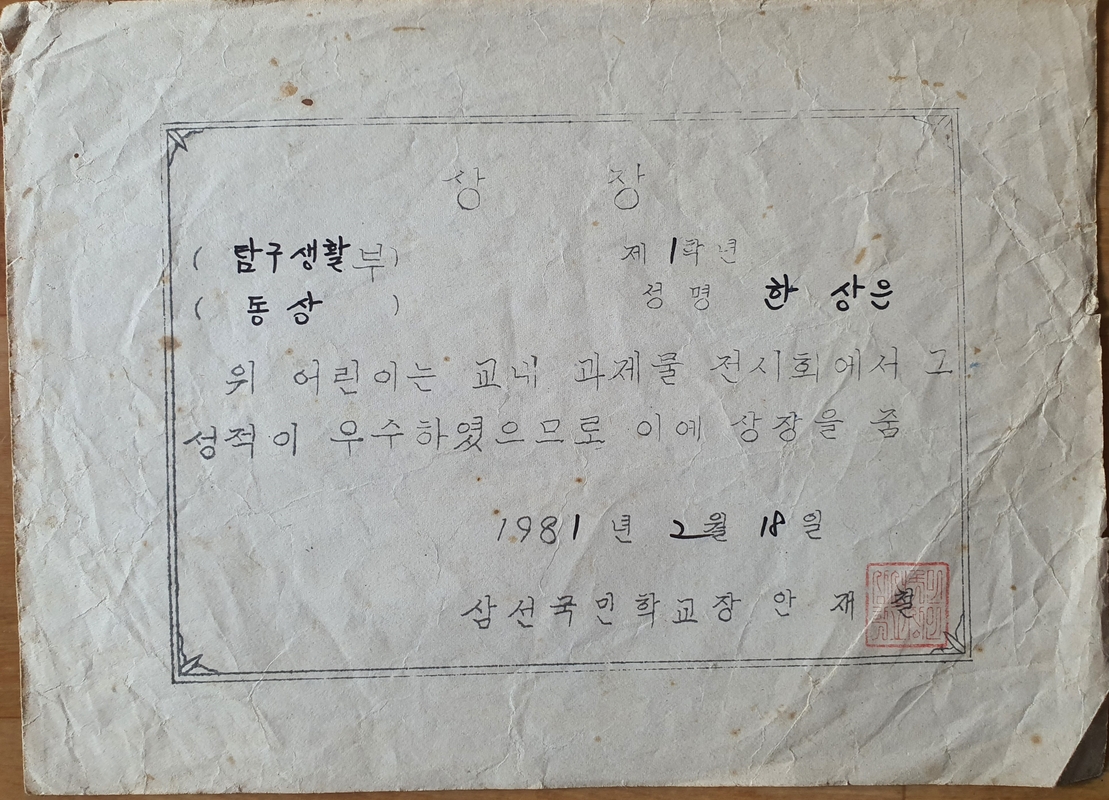 상 장
( 탐구생활부)
제 1학년
( 동상 )
성명 한 상은
위 어린이는 교내 과제물 전시회에서 그
성적이 우수하였으므로 이에 상장을 줌
1981 년 2월 18일
삼선국민학교장 안 재 철